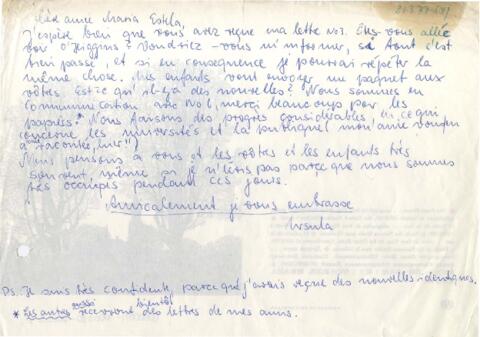 Chère amie Maria Estela,
J'espère bien que vous avez reçue ma lettre No3. Êtes-vous allée
voir O'Higgins? Voudriez-vous m'informer, si tout s'est
bien passé, et si en conséquence je pourrai répéter la
même chose. Les enfants vont envoyer un paquet aux
vôtres. Est-ce qu'il-y-a des nouvelles? Nous sommes en
communication avec No1, merci beaucoup pour les
papiers.* Nous faisons des progrès considérables en ce qui
concerne les universités et la
raconter, hier")
Nous pensons à vous et les vôtres et les enfants très
souvent, même si je n'écris pas parce que nous sommes
très occupés pendant ces jours.
Amicalement je vous embrasse
Ursula
Ps. Je suis très confidente, parce que j'avais reçue des nouvelles identiques.
* Les autres aussi recevront bientôt des lettres de mes amis.